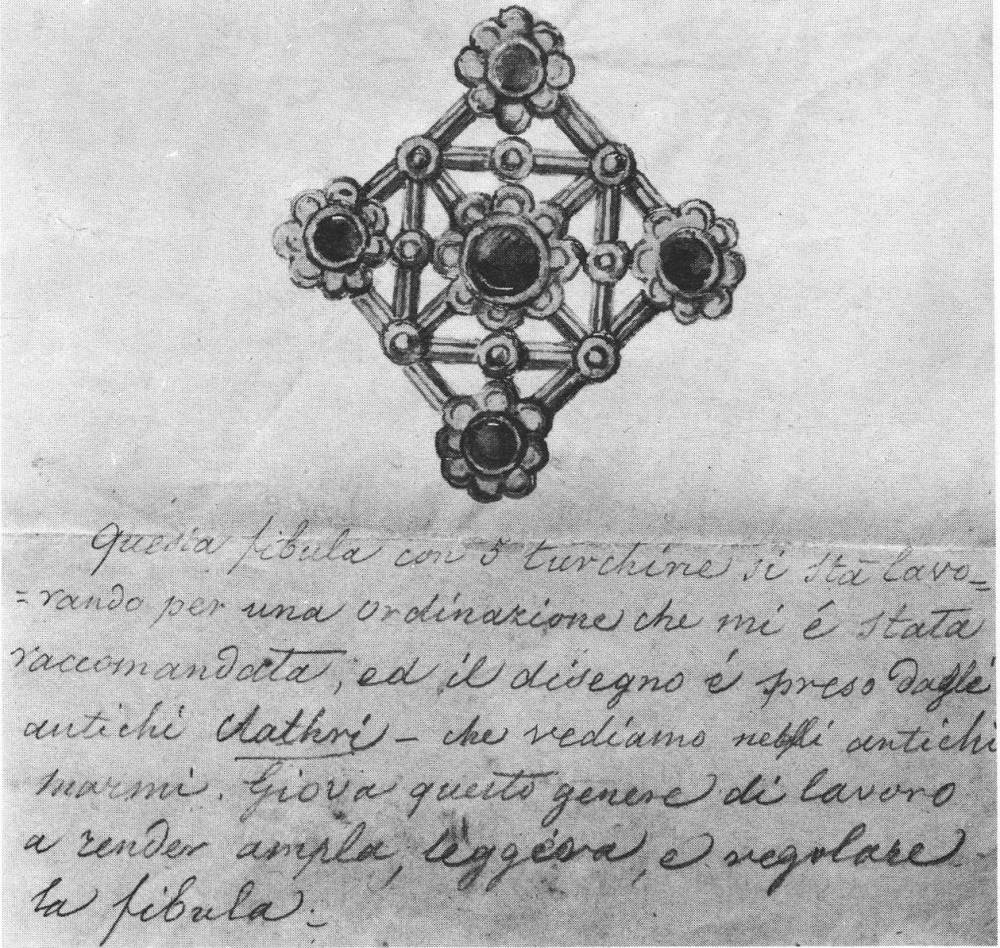 Questa fibula con 5 turchine si sta lavo=
=rando per una ordinazione che mi é stata
raccomandata, ed il disegno é preso dagli
antichi Clathri - che vediamo nelli antichi
marmi. Giova questo genere di lavoro
a render ampla, leggéra, e regolare
la fibula.-